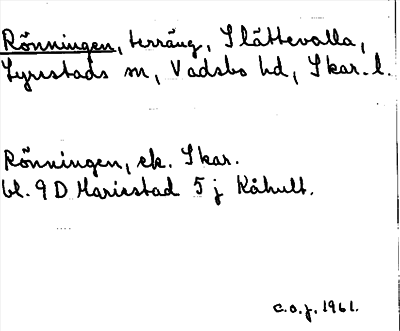 Rönningen, terräng, Slättevalla,
Lyrestads sn, Vadsbo hd, Skar. l.
Rönningen, ek. Skar.
bl. 9 D Mariestad 5 j Kåhult.
C.O.J. 1961.